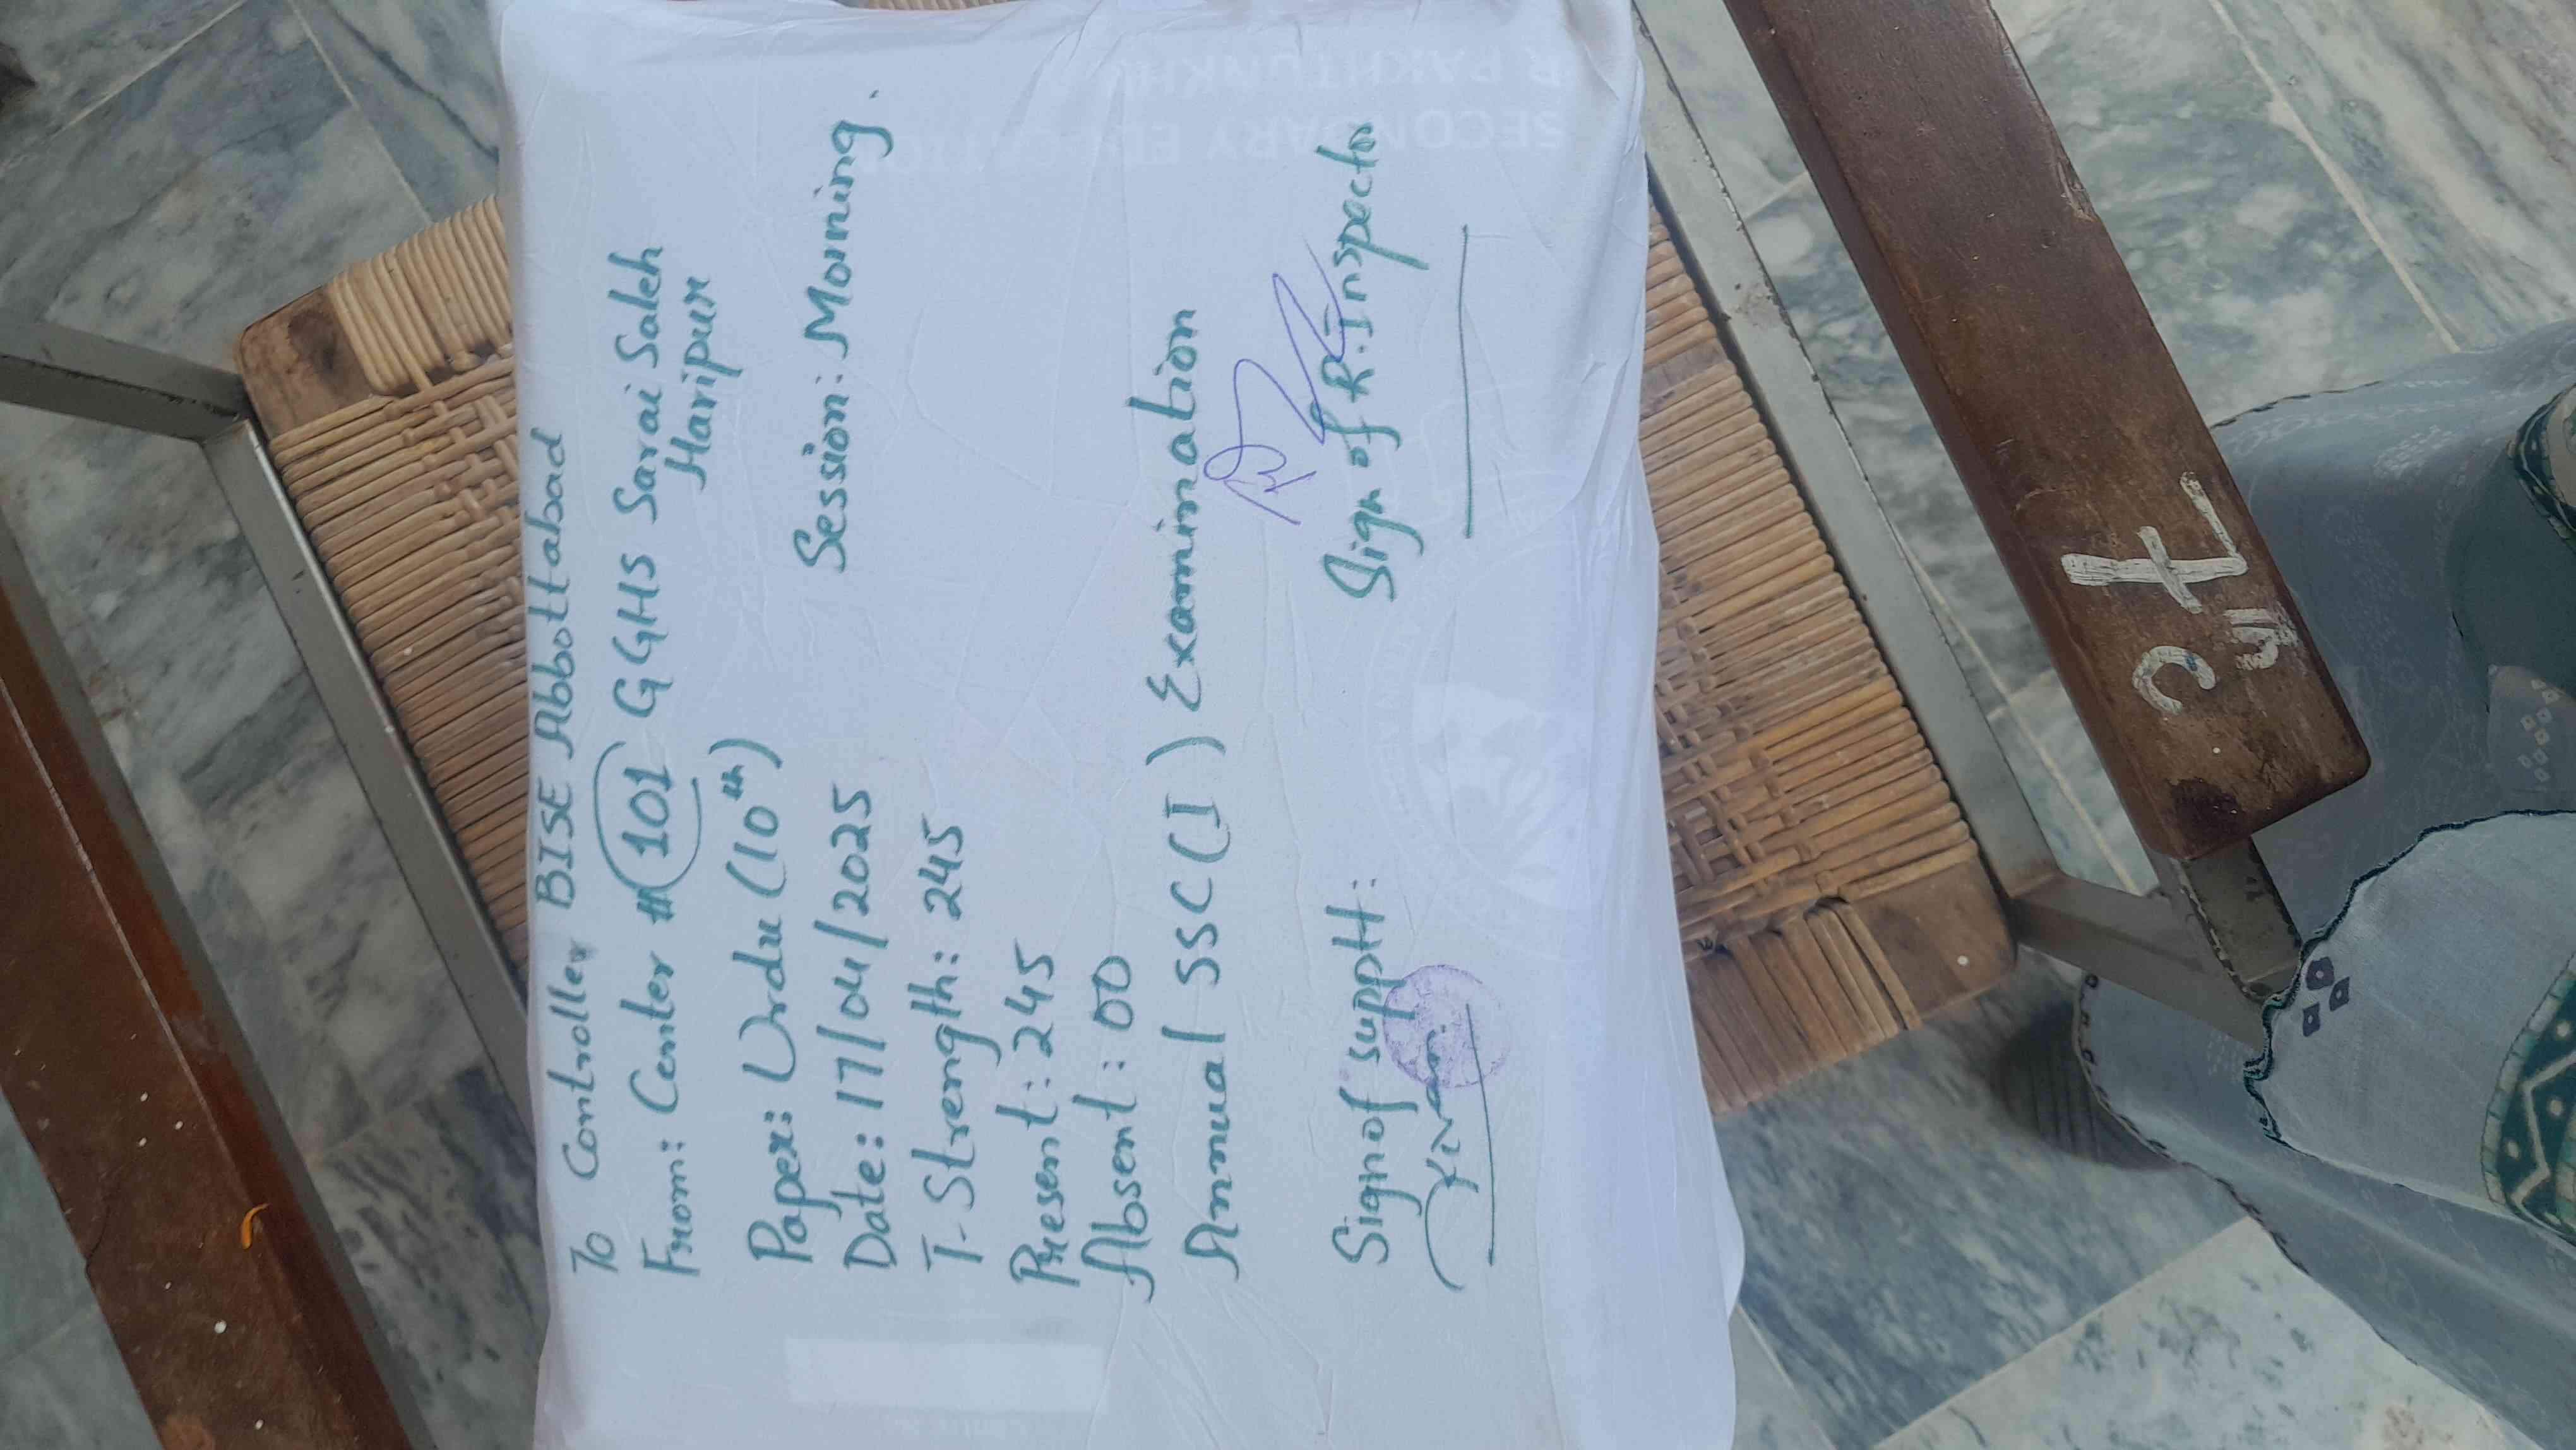 To Controller BISE Abbottabad
From: Center # 101 GGHS Sarai Saleh
Haripur
Paper: Urdu (10th)
Session: Morning.
Date: 17/04/2025
T-Strength: 245
Present: 245
Absent: 00
Annual SSC(I) Examination
Sign of suppH:
Sign of R.Inspector
SECONDARY
R PAKHTUNKH